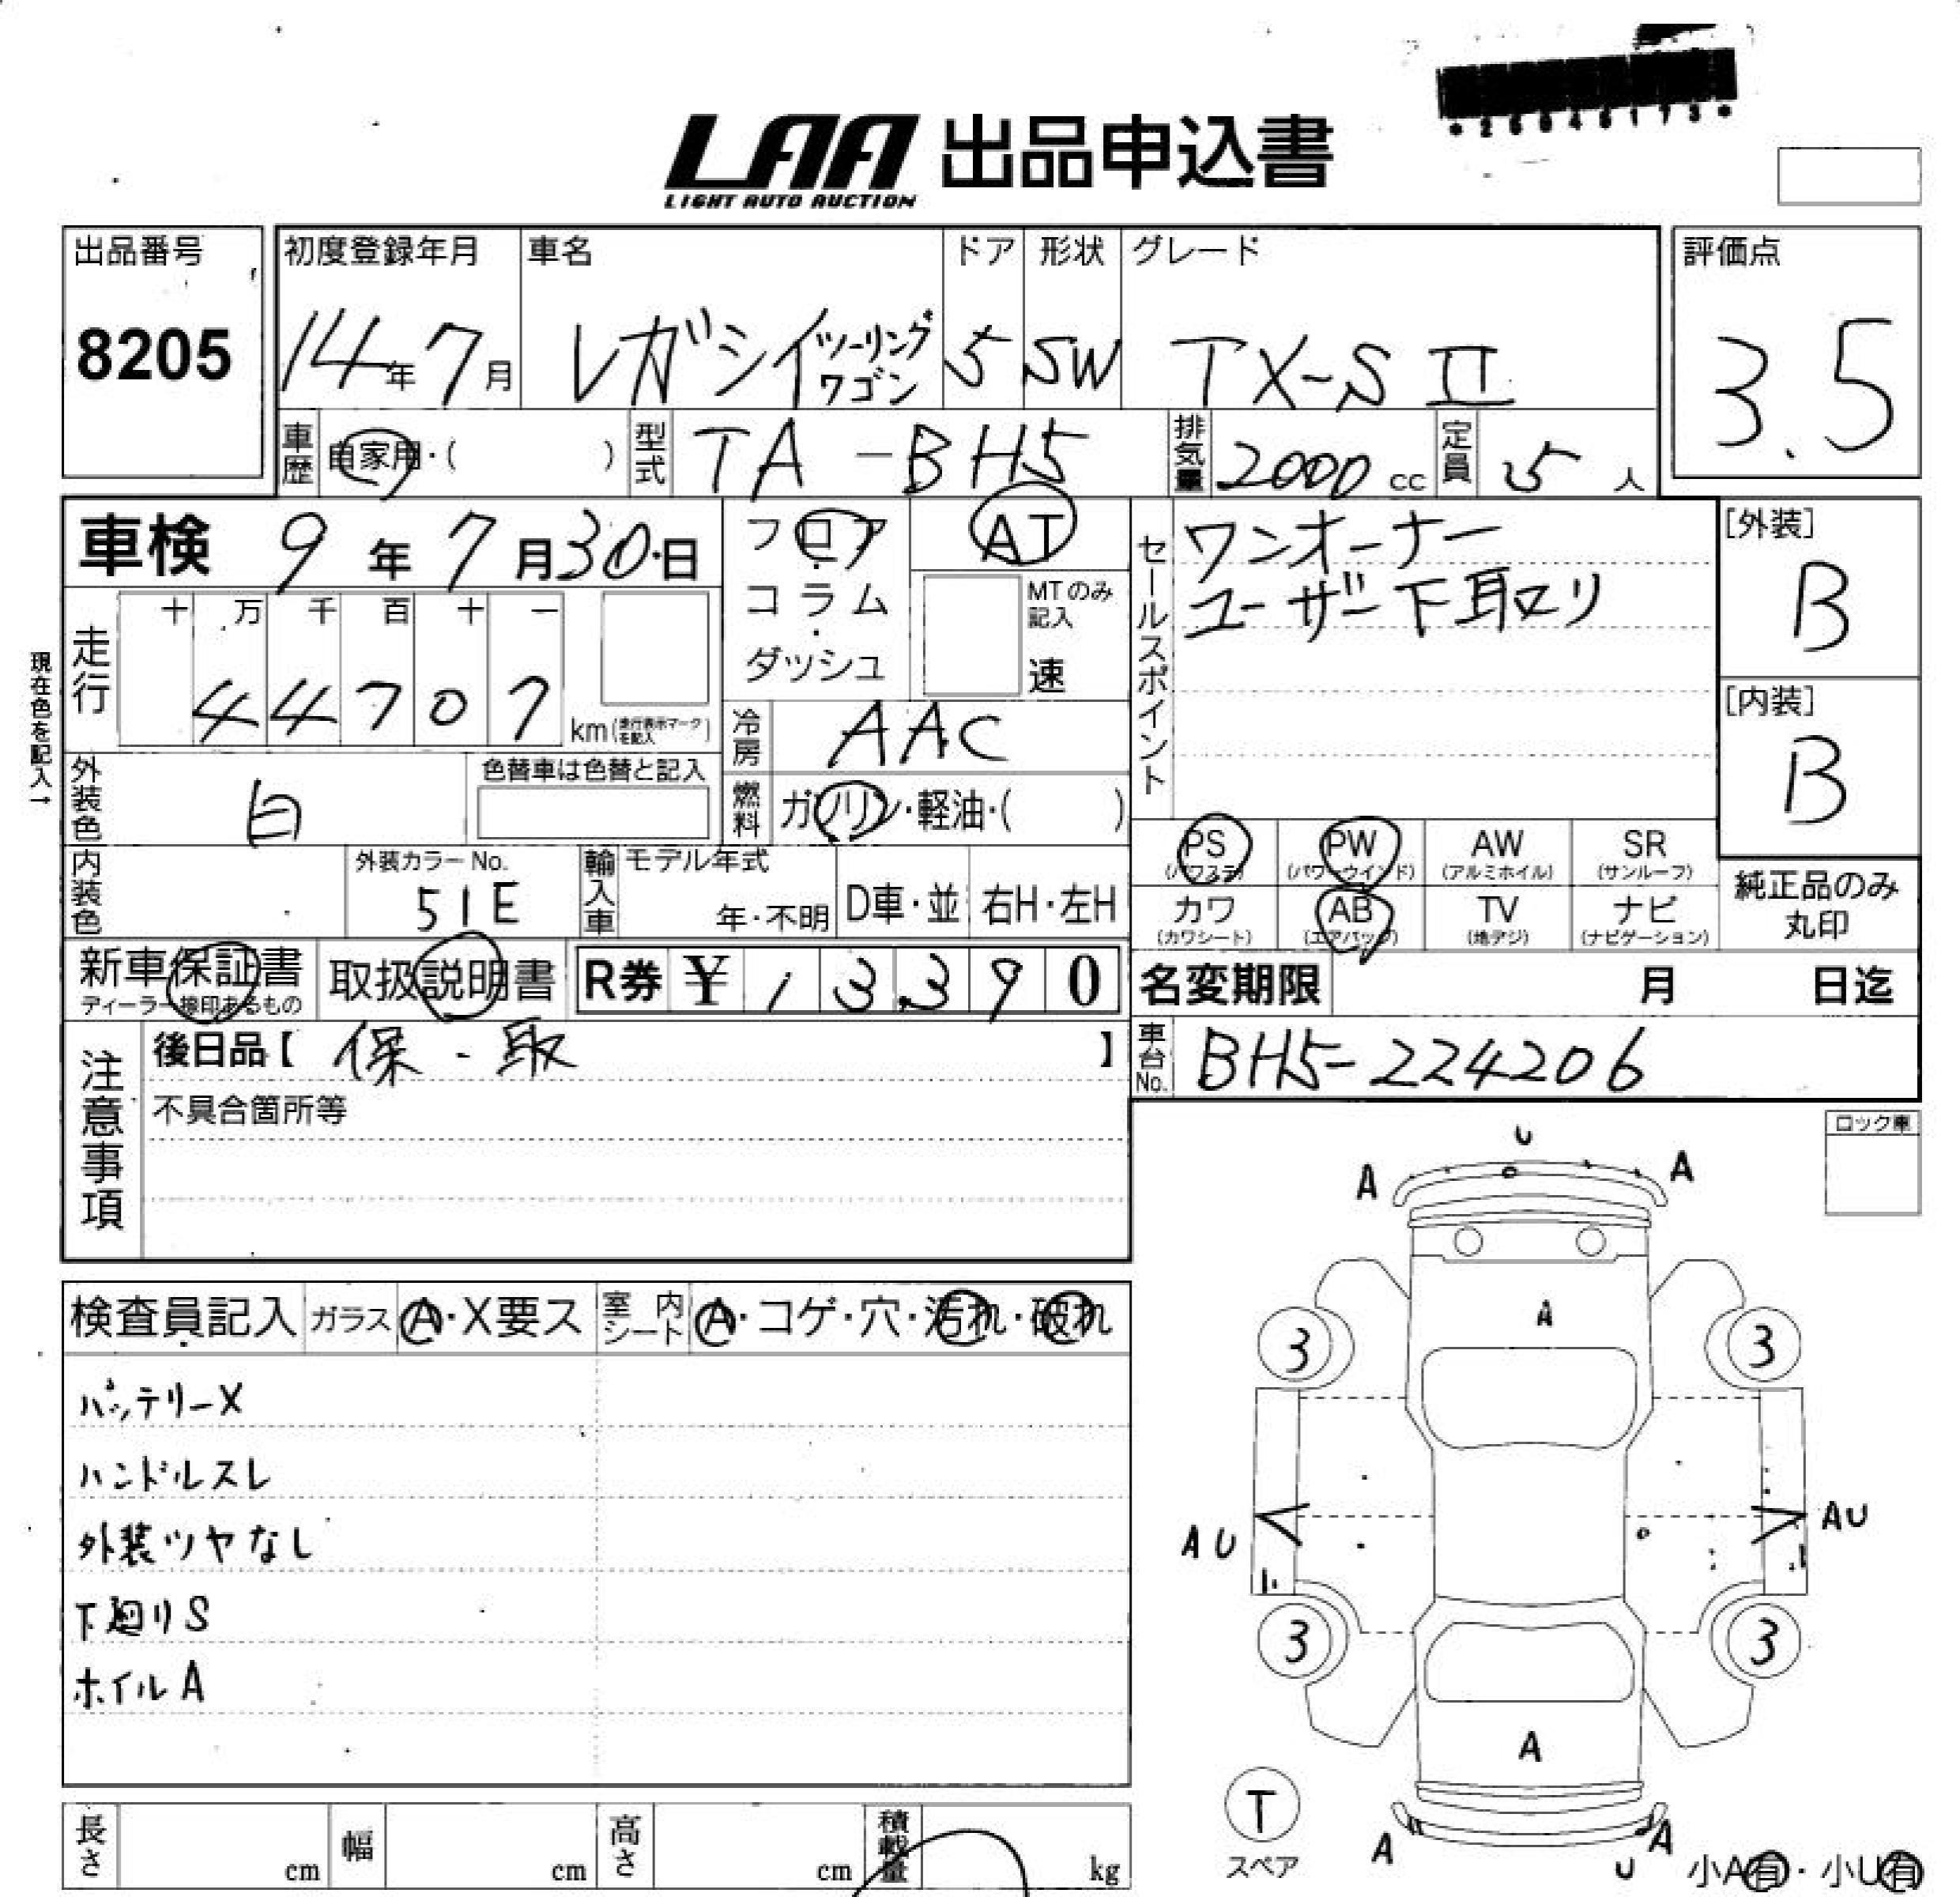 *26046173*
LAA 出品申込書
LIGHT AUTO AUCTION
出品番号
8205
初度登録年月
14年7月
車名
レガシイツーリングワゴン
ドア
5
形状
SW
グレード
TX-S II
評価点
3.5
車歴 自家用・( )
型式 TA-BH5
排気量 2000 cc
定員 5 人
車検 9年7月30日
フロア・コラム・ダッシュ
AT
MTのみ記入
速
セールスポイント
ワンオーナー
ユーザー下取リ
[外装]
B
[内装]
B
現在色を記入→
走行
十 万 千 百 十 一
4 4 7 0 7 km(走行表示マークを記入)
冷房 AAC
外装色 白
色替車は色替と記入
燃料 ガソリン・軽油・( )
PS (パワステ)
PW (パワーウインド)
AW (アルミホイル)
SR (サンルーフ)
カワ (カワシート)
AB (エアバッグ)
TV (地デジ)
ナビ (ナビゲーション)
純正品のみ
丸印
内装色
外装カラーNo.
51E
輸入車
モデル年式
年・不明
D車・並
右H・左H
新車保証書
ディーラー捺印あるもの
取扱説明書
R券 ¥ 1 3,3 9 0
名変期限 月 日迄
注意事項
後日品【 保・取 】
車台No. BH5-224206
不具合箇所等
ロック車
検査員記入
ガラス A・X要ス
室内シート A・コゲ・穴・汚れ・破れ
バッテリーX
ハンドルスレ
外装ツヤなし
下廻りS
ホイルA
U
A A
A
3 3
AU AU
3 3
A
T
スペア
A A
U
小A有・小U有
長さ cm
幅 cm
高さ cm
積載量 kg